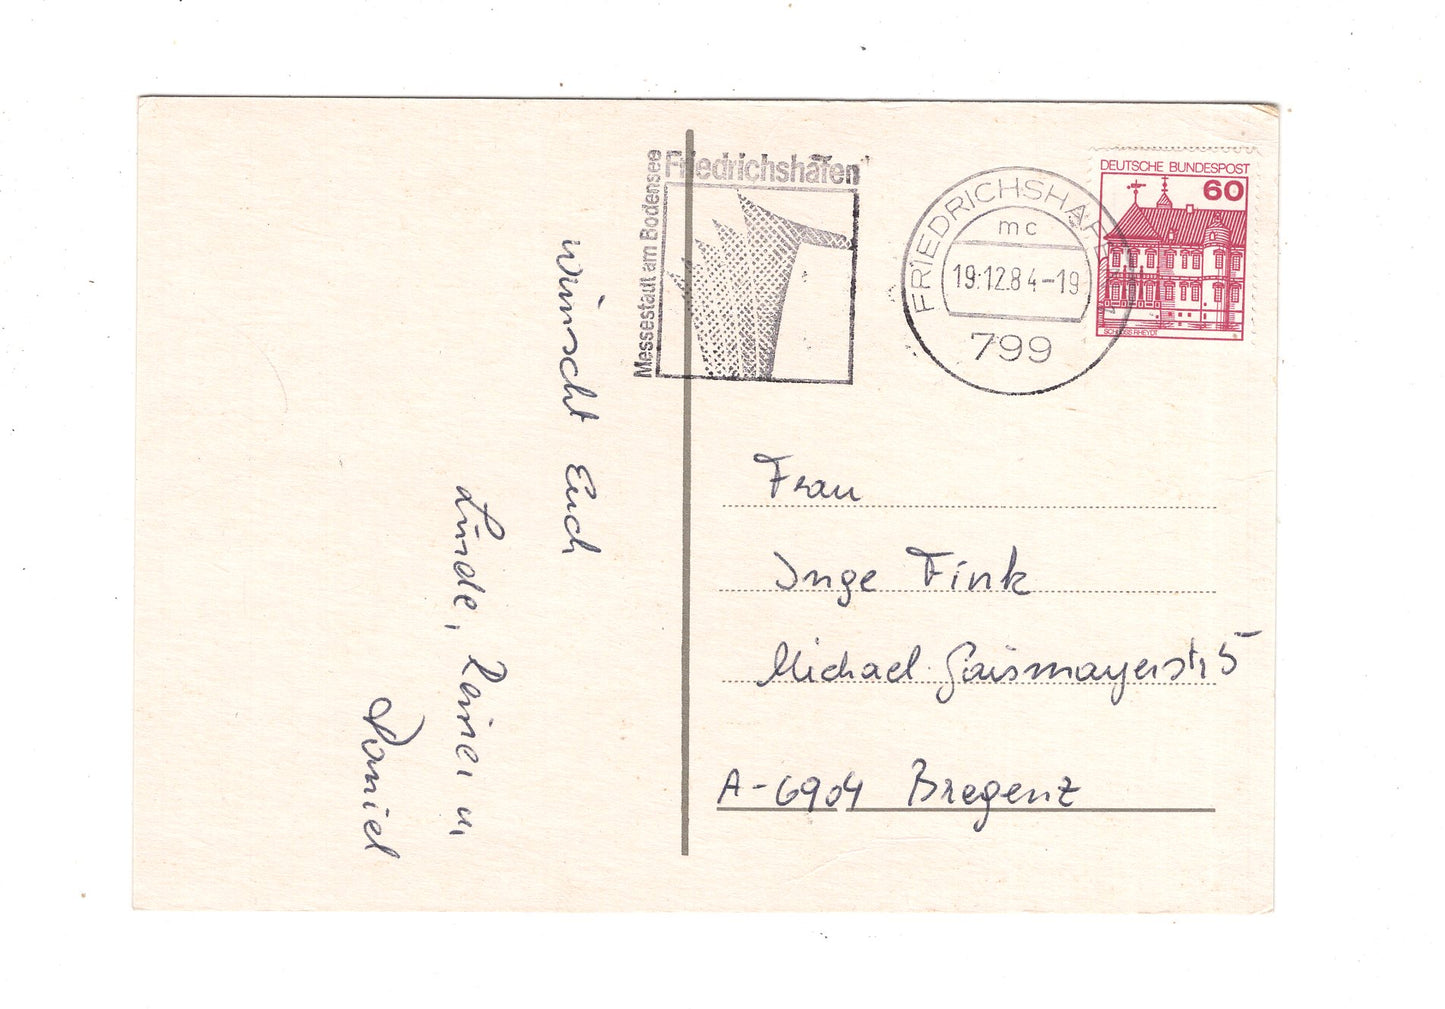 wünscht Euch
Linde, Reiner u.
Daniel
Friedrichshafen
Messestadt am Bodensee
FRIEDRICHSHAFEN
mc
19.12.84-19
799
DEUTSCHE BUNDESPOST
60
SCHLOSS RHEYDT
Frau
Inge Fink
Michael Gaismayerstr. 5
A-6904 Bregenz